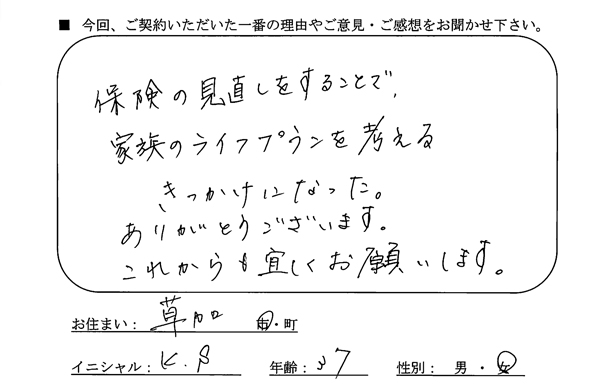 ■ 今回、ご契約いただいた一番の理由やご意見・ご感想をお聞かせ下さい。
保険の見直しをすることで、
家族のライフプランを考える
きっかけになった。
ありがとうございます。
これからも宜しくお願いします。
お住まい： 草加 市・町
イニシャル： K.S 年齢： 37 性別： 男 ・ 女